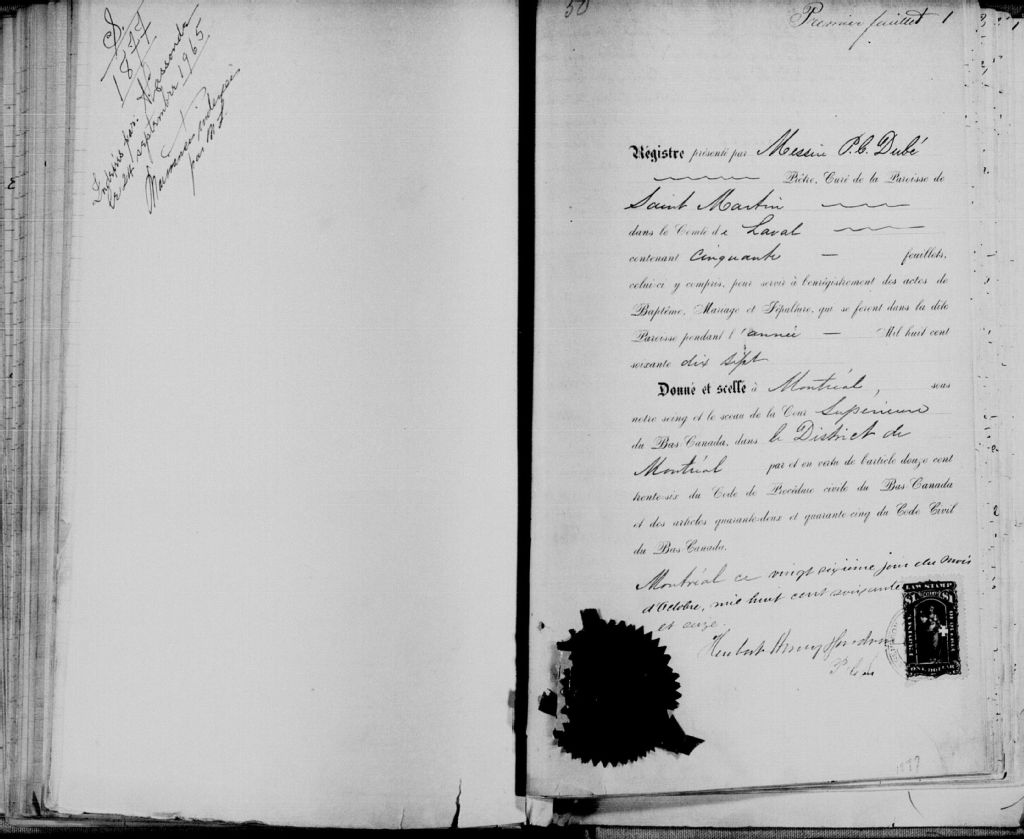 S.
1877
Indexés par: N. Lassonde
ce 14 septembre 1965
par M. L.
50
Premier feuillet 1
Régistre présenté par Messire P. C. Dubé
Prêtre, Curé de la Paroisse de
Saint Martin
dans le Comté de Laval
contenant cinquante — feuillets,
celui-ci y compris, pour servir à l'enrégistrement des actes de
Baptême, Mariage et Sépulture, qui se feront dans la dite
Paroisse pendant l'année — Mil huit cent
soixante dix sept
Donné et scellé à Montréal, sous
notre seing et le sceau de la Cour Supérieure
du Bas-Canada, dans le District de
Montréal par et en vertu de l'article douze cent
trente-six du Code de Procédure civile du Bas-Canada
et des articles quarante-deux et quarante-cinq du Code Civil
du Bas-Canada.
Montréal ce vingt sixième jour du mois
d'Octobre, mil huit cent soixante
et onze.
LAW STAMP
$1 $1
ONE DOLLAR
1877